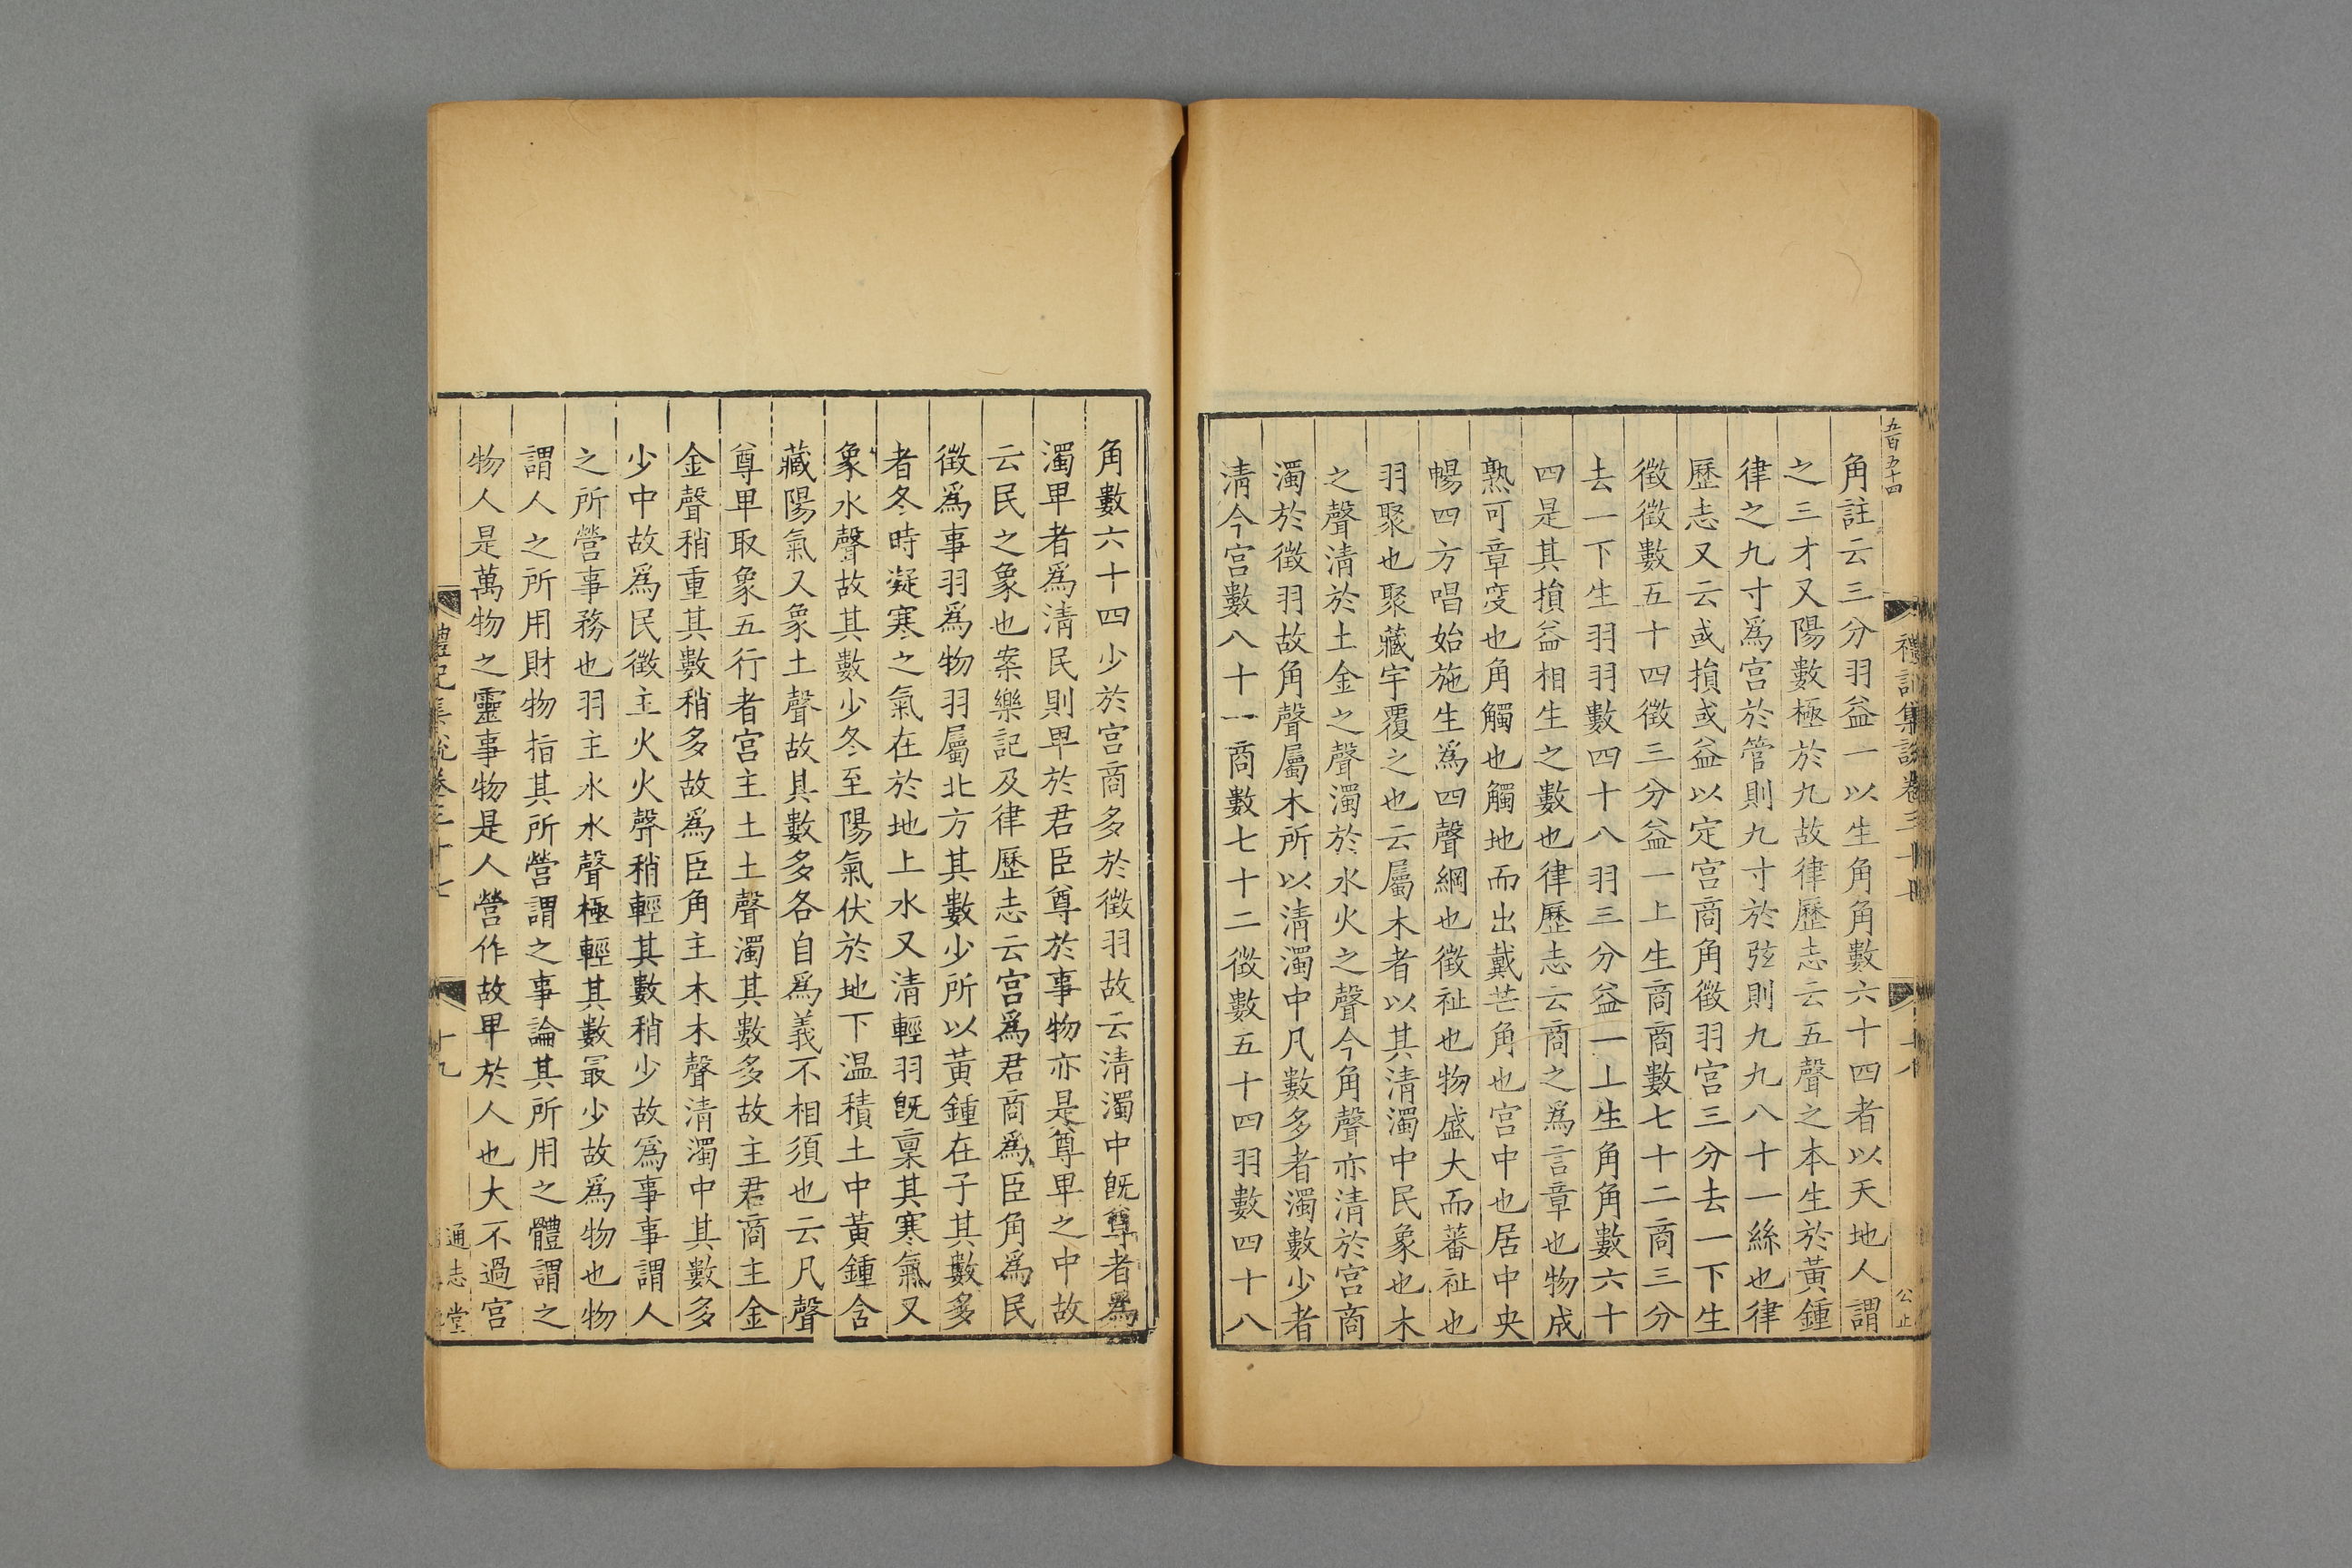 五百五十四
禮記集說卷三十七
十八
公止
角註云三分羽益一以生角角數六十四者以天地人謂
之三才又陽數極於九故律歷志云五聲之本生於黃鍾
律之九寸爲宮於管則九寸於弦則九九八十一絲也律
歷志又云或損或益以定宮商角徵羽宮三分去一下生
徵徵數五十四徵三分益一上生商商數七十二商三分
去一下生羽羽數四十八羽三分益一上生角角數六十
四是其損益相生之數也律歷志云商之爲言章也物成
熟可章㪅也角觸也觸地而出戴芒角也宮中也居中央
暢四方唱始施生爲四聲綱也徵祉也物盛大而蕃祉也
羽聚也聚藏宇覆之也云屬木者以其清濁中民象也木
之聲清於土金之聲濁於水火之聲今角聲亦清於宮商
濁於徵羽故角聲屬木所以清濁中凡數多者濁數少者
清今宮數八十一商數七十二徵數五十四羽數四十八
角數六十四少於宮商多於徵羽故云清濁中旣尊者爲
濁卑者爲清民則卑於君臣尊於事物亦是尊卑之中故
云民之象也案樂記及律歷志云宮爲君商爲臣角爲民
徵爲事羽爲物羽屬北方其數少所以黃鍾在子其數多
者冬時凝寒之氣在於地上水又清輕羽旣稟其寒氣又
象水聲故其數少冬至陽氣伏於地下温積土中黃鍾含
藏陽氣又象土聲故其數多各自爲義不相須也云凡聲
尊卑取象五行者宮主土土聲濁其數多故主君商主金
金聲稍重其數稍多故爲臣角主木木聲清濁中其數多
少中故爲民徵主火火聲稍輕其數稍少故爲事事謂人
之所營事務也羽主水水聲極輕其數最少故爲物也物
謂人之所用財物指其所營謂之事論其所用之體謂之
物人是萬物之靈事物是人營作故卑於人也大不過宮
禮記集說卷三十七
十九
通志堂